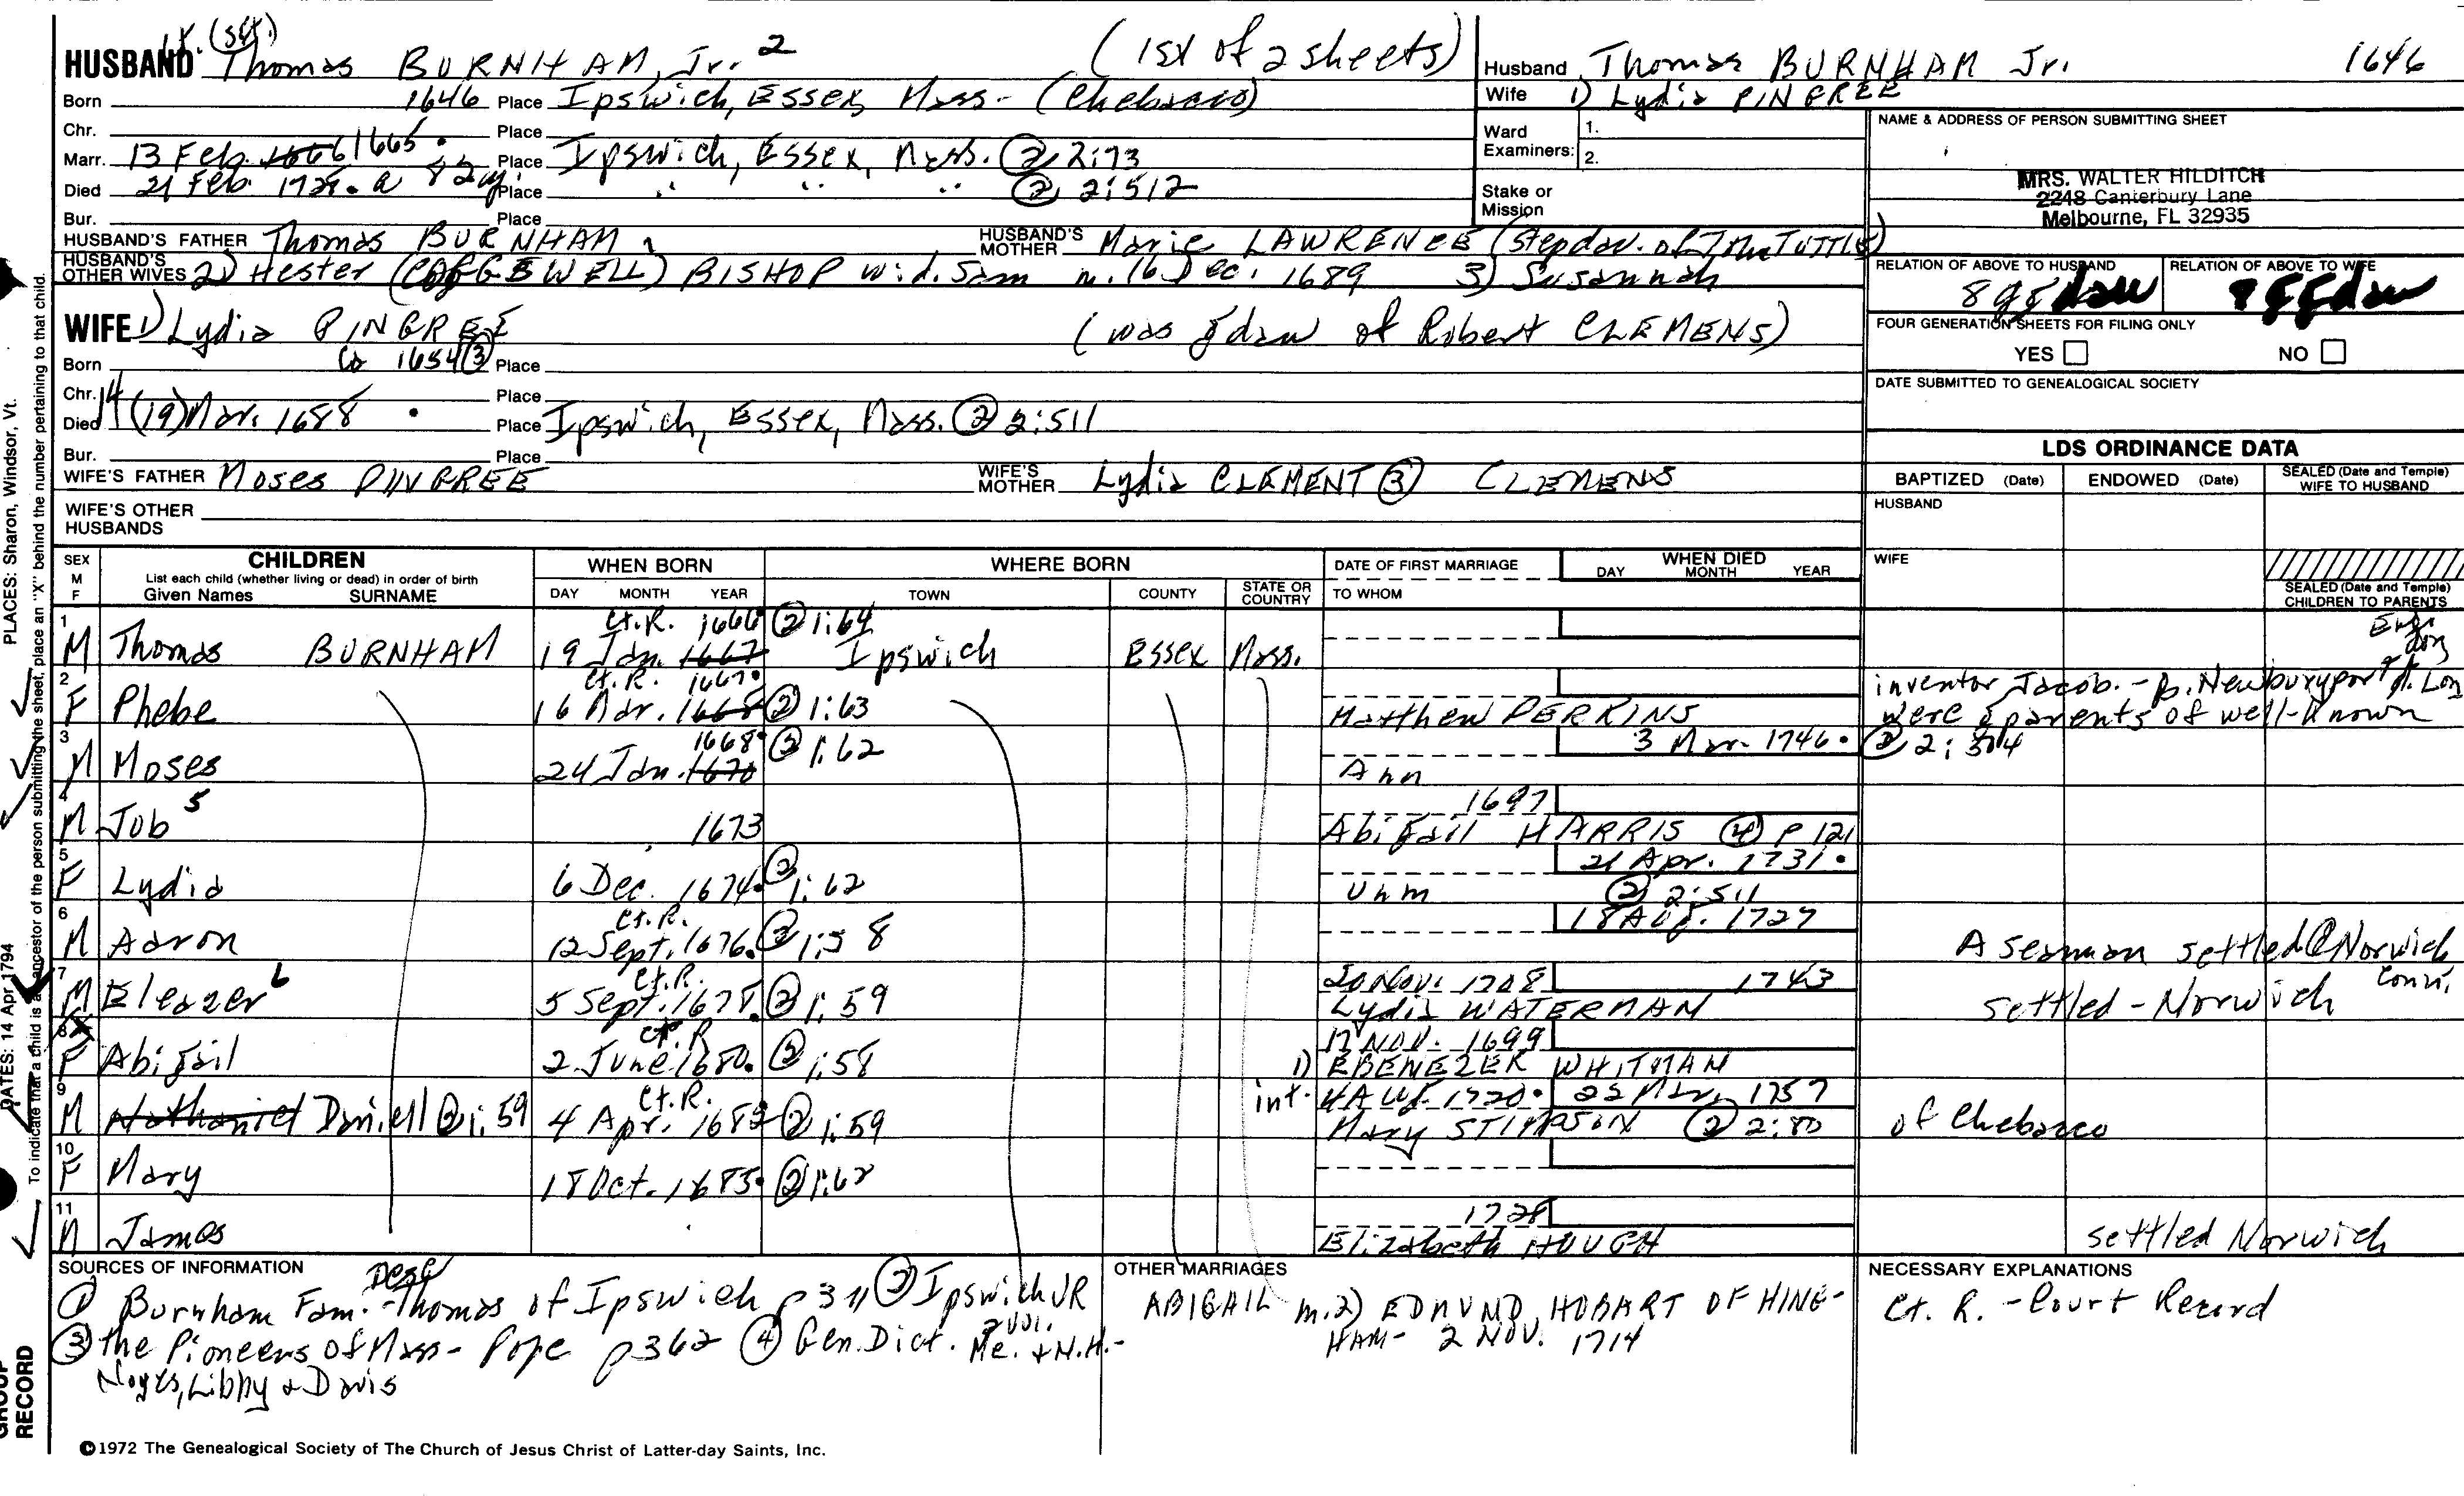 Lt. (Sgt.)
HUSBAND Thomas BURNHAM, Jr. 2 (1st of 2 sheets)
Born 1646 Place Ipswich, Essex, Mass- (Chebacco)
Chr. Place
Marr. 13 Feb. 1666 1665. Place Ipswich, Essex, Mass. (2) 2:73
Died 21 Feb. 1728. a 82y. Place " " " (2) 2:512
Bur. Place
HUSBAND'S FATHER Thomas BURNHAM 1 HUSBAND'S MOTHER Marie LAWRENCE (Stepdau. of John TUTTLE)
HUSBAND'S OTHER WIVES 2) Hester (COGGSWELL) BISHOP wid. Sam m. 16 Dec. 1689 3) Susannah
WIFE 1) Lydia PINGREE (was gdau of Robert CLEMENS)
Born Ca 1654 (3) Place
Chr. Place
Died 14 (19) Mar. 1688 . Place Ipswich, Essex, Mass. (2) 2:511
Bur. Place
WIFE'S FATHER Moses PINGREE WIFE'S MOTHER Lydia CLEMENT (3) CLEMENS
WIFE'S OTHER HUSBANDS
Husband Thomas BURNHAM Jr. 1646
Wife 1) Lydia PINGREE
Ward Examiners: 1. 2.
Stake or Mission
NAME & ADDRESS OF PERSON SUBMITTING SHEET
MRS. WALTER HILDITCH
2248 Canterbury Lane
Melbourne, FL 32935
RELATION OF ABOVE TO HUSBAND RELATION OF ABOVE TO WIFE
8 ggdau 8 ggdau
FOUR GENERATION SHEETS FOR FILING ONLY
YES NO
DATE SUBMITTED TO GENEALOGICAL SOCIETY
LDS ORDINANCE DATA
BAPTIZED (Date) ENDOWED (Date) SEALED (Date and Temple) WIFE TO HUSBAND
HUSBAND
WIFE
SEALED (Date and Temple) CHILDREN TO PARENTS
SEX M F CHILDREN List each child (whether living or dead) in order of birth Given Names SURNAME WHEN BORN DAY MONTH YEAR WHERE BORN TOWN COUNTY STATE OR COUNTRY DATE OF FIRST MARRIAGE TO WHOM WHEN DIED DAY MONTH YEAR
1 M Thomas BURNHAM 19 Jan. 1667 Ct.R. 1666. (2) 1:64 Ipswich Essex Mass.
2 F Phebe 16 Apr. 1668 Ct.R. 1667. (2) 1:63 Matthew PERKINS
inventor Jacob.- b. Newburyport d. Lon
were gparents of well-known
3 M Moses 24 Jan. 1670 1668. (2) 1:62 Ann 3 Mar. 1746. (2) 2:504
4 M Job 5 1673 1697 Abigail HARRIS (4) p 121
5 F Lydia 6 Dec. 1674. (2) 1:62 Unm 21 Apr. 1731. (2) 2:511
6 M Aaron Ct.R. 12 Sept. 1676. (2) 1:58 18 Aug. 1727 A seaman settled @ Norwich Conn.
7 M Eleazer 6 Ct.R. 5 Sept. 1678. (2) 1:59 20 Nov. 1708 Lydia WATERMAN 1743 settled - Norwich
8 X F Abigail Ct.R 2 June 1680. (2) 1:58 17 NOV. 1699 1) EBENEZER WHITMAN
9 M Nathaniel Daniell (2) 1:59 Ct.R. 4 Apr. 1682 (2) 1:59 int. 4 Aug. 1720. Mary STIMPSON 22 Mar. 1757 (2) 2:80 of Chebacco
10 F Mary 18 Oct. 1685. (2) 1:62
11 M James 1728 Elizabeth HOUGH settled Norwich
SOURCES OF INFORMATION
(1) Burnham Fam.- Desc Thomas of Ipswich p 311 (2) Ipswich VR 2 vol.
(3) the Pioneers of Mass - Pope p362 (4) Gen. Dict. Me. + N.H.-
Noyes, Libby & Davis
OTHER MARRIAGES
ABIGAIL m. 2) EDMVND HOBART OF HING-
HAM- 2 NOV. 1714
NECESSARY EXPLANATIONS
Ct. R. - Court Record
©1972 The Genealogical Society of The Church of Jesus Christ of Latter-day Saints, Inc.
PLACES: Sharon, Windsor, Vt.
DATES: 14 Apr 1794
To indicate that a child is an ancestor of the person submitting the sheet, place an "X" behind the number pertaining to that child.
GROUP RECORD